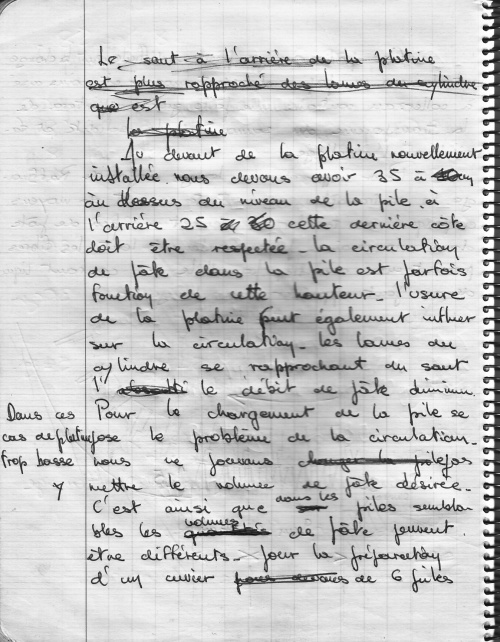 Le saut à l'arrière de la platine
est plus rapproché des lames du cylindre
que est
la platine
Au devant de la platine nouvellement
installée nous devons avoir 35 à 40 cm
au dessus du niveau de la pile. à
l'arrière 25 à 30 cette dernière côte
doit être respectée - la circulation
de pâte dans la pile est parfois
fonction de cette hauteur - l'usure
de la platine peut également influer
sur la circulation - les lames du
cylindre se rapprochant du saut
l' le débit de pâte diminue.
Dans ces Pour le chargement de la pile se
cas de platine pose le problème de la circulation -
trop basse nous ne pouvons charger la pile pas
mettre le volume de pâte désirée -
C'est ainsi que dans les piles sembla-
bles les volumes quantités de pâte peuvent
être différents - pour la préparation
d'un cuvier pour devons de 6 piles